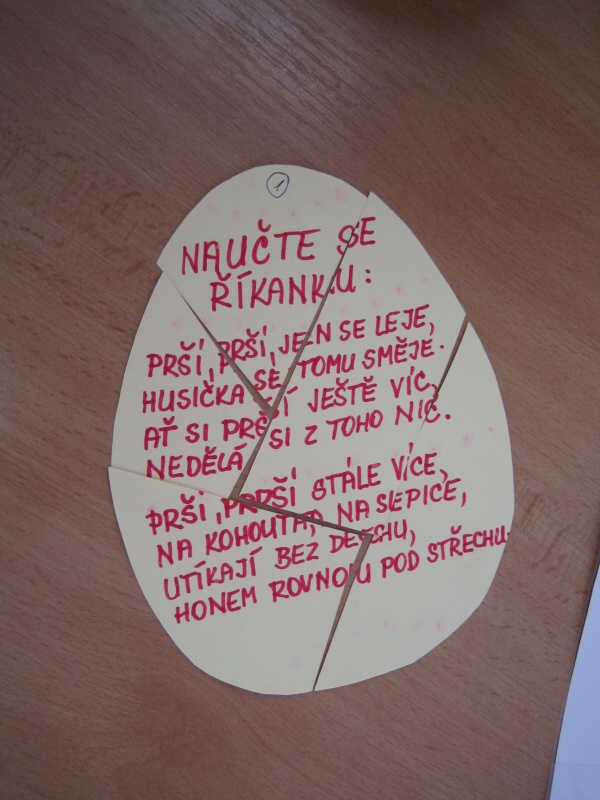 1
NAUČTE SE
ŘÍKANKU:
PRŠÍ, PRŠÍ, JEN SE LEJE,
HUSIČKA SE TOMU SMĚJE.
AŤ SI PRŠÍ JEŠTĚ VÍC,
NEDĚLÁ SI Z TOHO NIC.
PRŠÍ, PRŠÍ STÁLE VÍCE,
NA KOHOUTA, NA SLEPICE,
UTÍKAJÍ BEZ DECHU,
HONEM ROVNOU POD STŘECHU.